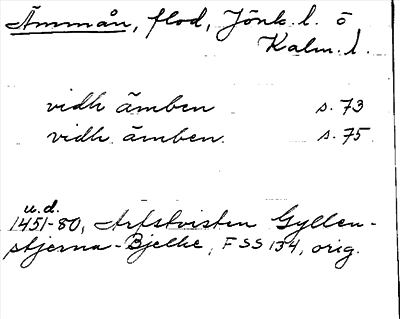 Ämmån, flod, Jönk. l. o
Kalm. l.
vidh ämben s. 73
vidh ämben. s. 75
u.d.
1451-80, Arfstvisten Gyllen-
stjerna-Bjelke, FSS 134, orig.